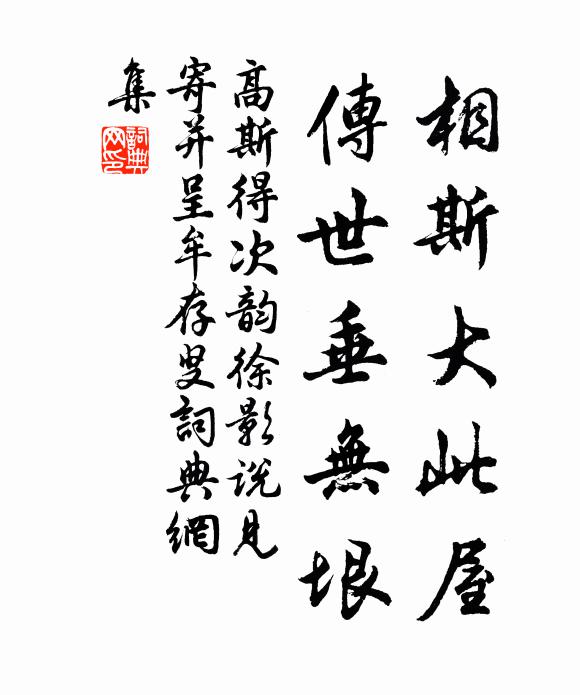 相斯大此屋
傳世垂無垠
高斯得次韵徐影说見
寄并呈牟存叟詞典網
集
詞典网印